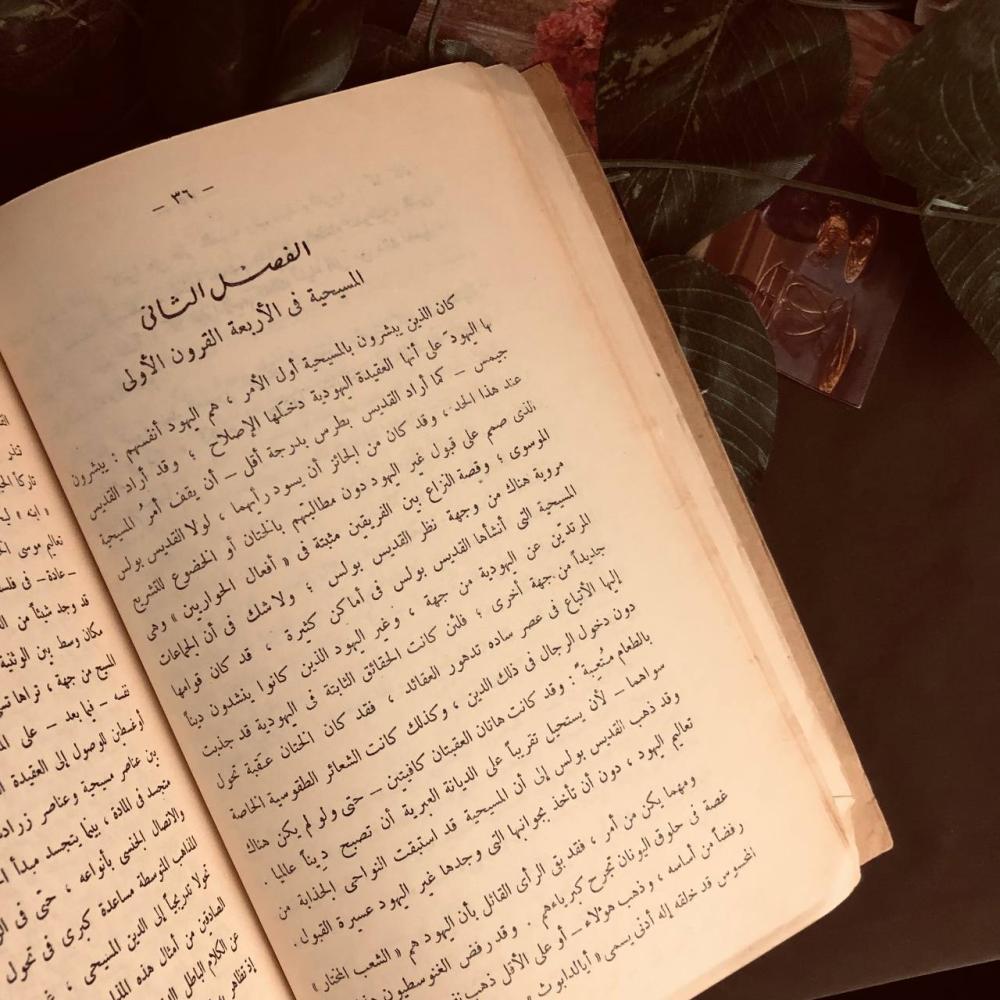 - ٣٦ -
الفصل الثانى
المسيحية فى الأربعة القرون الأولى
كان الذين يبشرون بالمسيحية أول الأمر ، هم اليهود أنفسهم : يبشرون
بها اليهود على أنها العقيدة اليهودية دخلها الإصلاح ؛ وقد أراد القديس
جيمس – كما أراد القديس بطرس بدرجة أقل – أن يقف أمرُ المسيحية
عند هذا الحد ، وقد كان من الجائز أن يسود رأيهما ، لولا القديس بولس
الذى صمم على قبول غير اليهود دون مطالبتهم بالختان أو الخضوع للتشريع
الموسوى ؛ وقصة النزاع بين الفريقين مثبتة فى « أفعال الحواريين » وهى
مروية هناك من وجهة نظر القديس بولس ؛ ولا شك فى أن الجماعات
المسيحية التى أنشأها القديس بولس فى أماكن كثيرة ، قد كان قوامها
المرتدين عن اليهودية من جهة ، وغير اليهود الذين كانوا ينشدون ديناً
جديداً من جهة أخرى ؛ فلئن كانت الحقائق الثابتة فى اليهودية قد جذبت
إليها الأتباع فى عصر ساده تدهور العقائد ، فقد كان الختان عقبة تحول
دون دخول الرجال فى ذلك الدين ، وكذلك كانت الشعائر الطقوسية الخاصة
بالطعام متعِبة ً : وقد كانت هاتان العقبتان كافيتين – حتى ولو لم يكن هناك
سواهما – لأن يستحيل تقريباً على الديانة العبرية أن تصبح ديناً عالميا .
وقد ذهب القديس بولس إلى أن المسيحية قد استبقت النواحى الجذابة من
تعاليم اليهود ، دون أن تأخذ بجوانبها التى وجدها غير اليهود عسيرة القبول .
ومهما يكن من أمر ، فقد بقى الرأى القائل بأن اليهود هم « الشعب المختار »
غصة فى حلوق اليونان تجرح كبرياءهم . وقد رفض الغنوسطيون هذا
رفضاً من أساسه ، وذهب هؤلاء – أو على الأقل ذهب
المحسوس قد خلقه إله أدنى يسمى « أيالدابوث »
تعاليم موسى
– عادة – فى
قد وجد شيئاً من
مكان وسط بين الوثنية
المسيح من جهة ، تراها
نفسه – فيما بعد – على
أوغسطين للوصول إلى العقيدة
بين عناصر مسيحية وعناصر
متجسد فى المادة ، بينما يتجسد مبدأ
والاتصال الجنسى بأنواعه ، حتى فى
المذاهب المتوسطة مساعدة كبرى فى تحول
تحولا تدريجياً إلى الدين المسيحى ،
الصادقين من أمثال هذه
عن الكلام الباطل